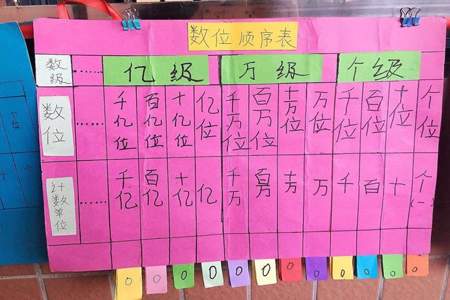 数位顺序表
数级 …… 亿级 万级 个级
数位 …… 千亿位 百亿位 十亿位 亿位 千万位 百万位 十万位 万位 千位 百位 十位 个位
计数单位 …… 千亿 百亿 十亿 亿 千万 百万 十万 万 千 百 十 个(一)
0 0 0 0 0 0 0 0 0 0 0 0